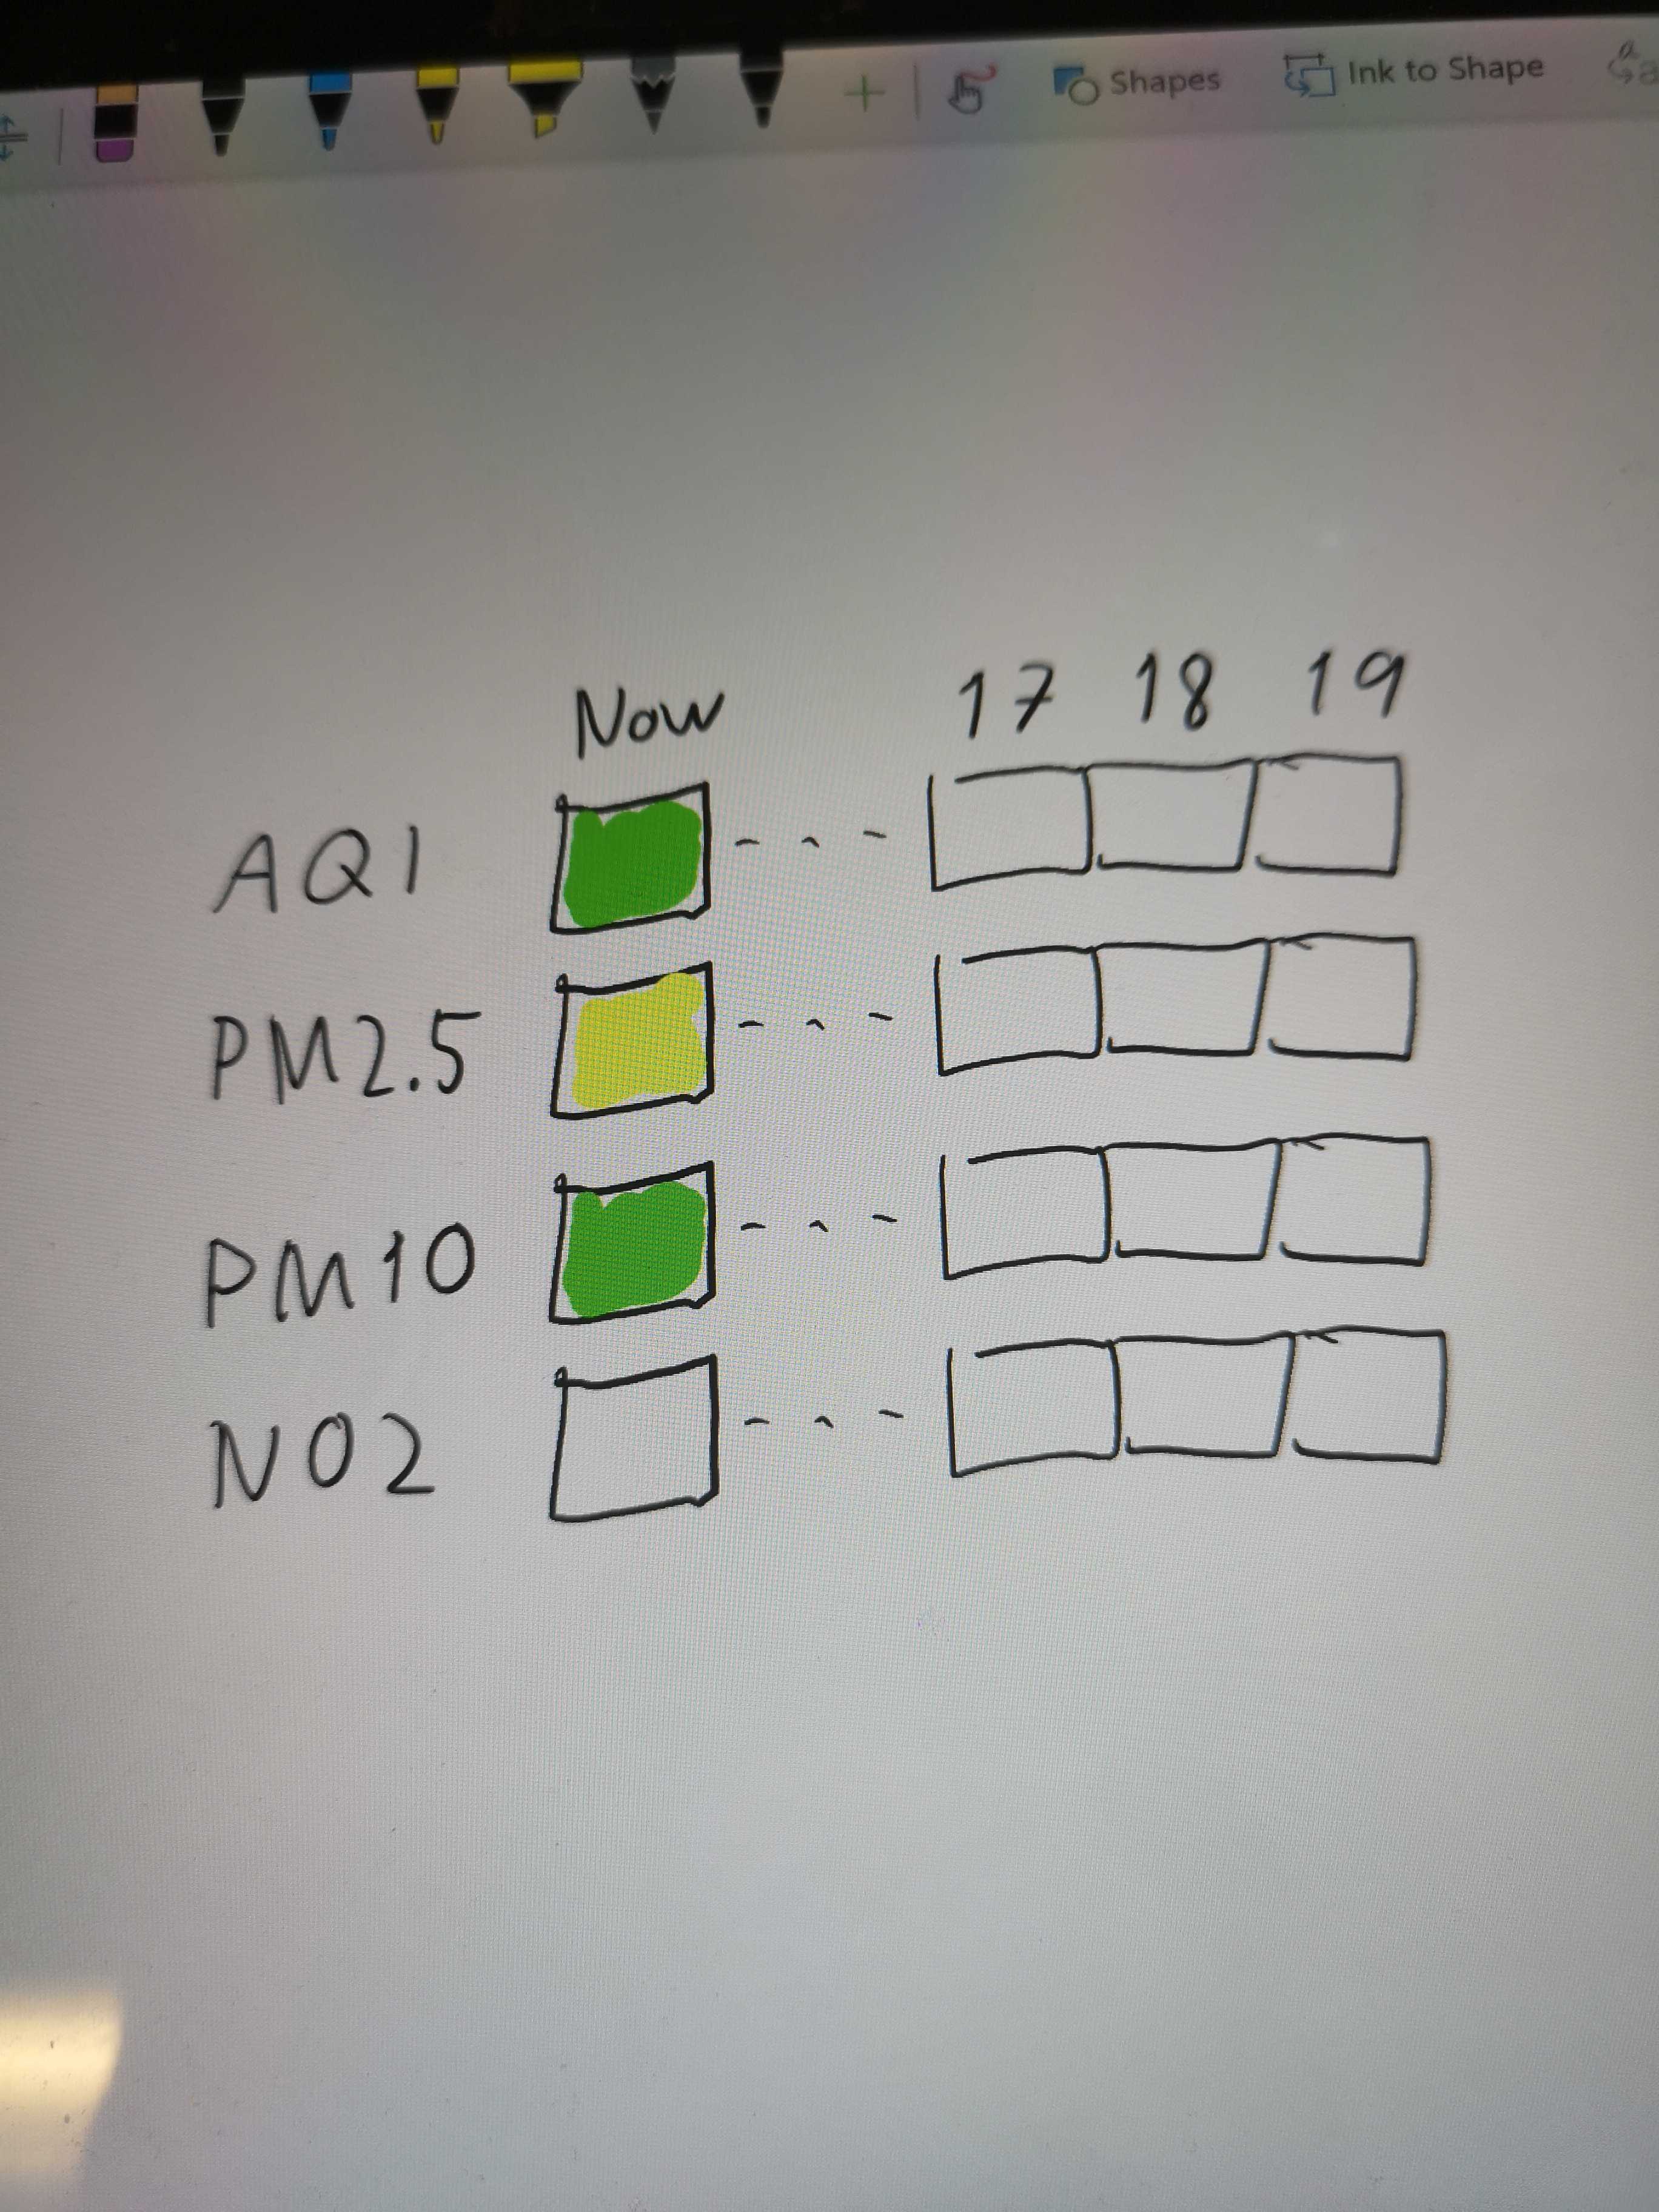 Shapes Ink to Shape
Now 17 18 19
AQI
PM2.5
PM10
NO2